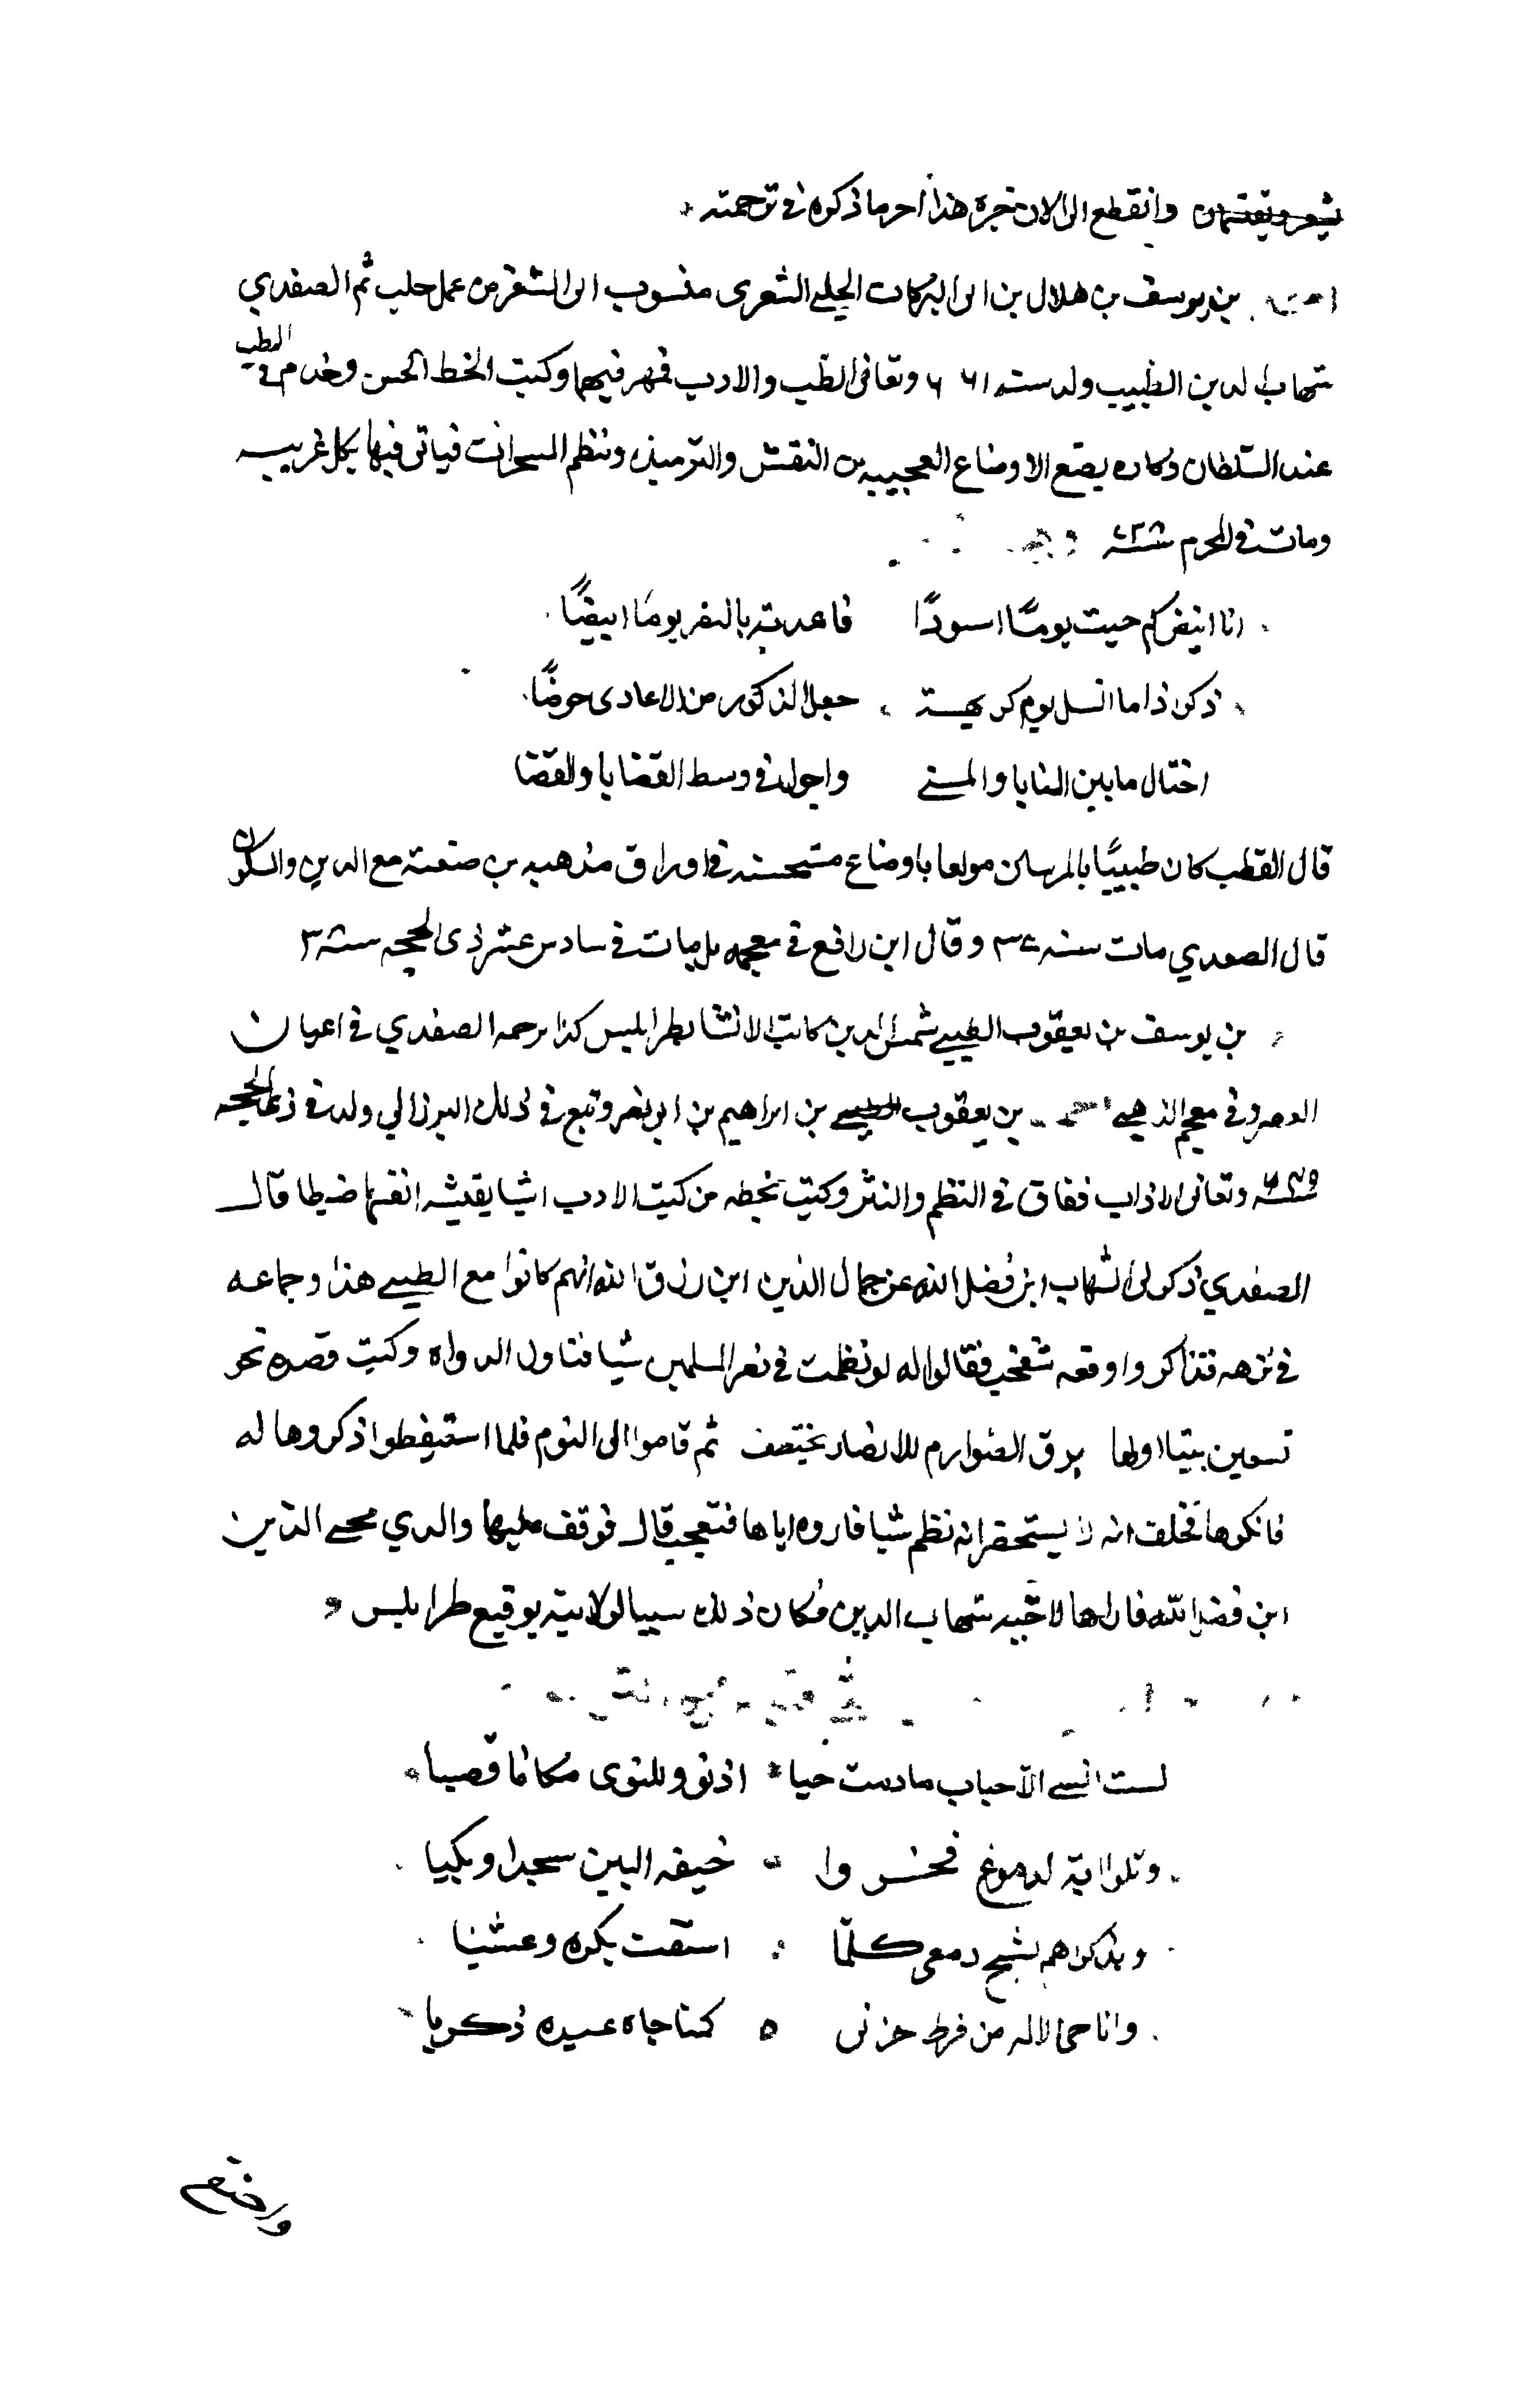 وانقطع الى الان خبره هذا اخر ما ذكره في ترجمته
بن يوسف بن هلال بن ابى البركات الحلبي الشغرى منسوب الى الشغر من عمل حلب ثم الصفدي
شهاب الدين الطبيب ولد سنه ٦٦١ وتعانى الطب والادب فمهر فيهما وكتب الخط الحسن وخدم في الطب
عند السلطان وكان يصنع الاوضاع العجيبه من النقش والترميذ ونظم المسرات فياتى فيها بكل غريبه
ومات في المحرم سنه ٧٣٨
انا ابيض كم جبت يوما اسودا فاعدته بالنصر يوما ابيضا
ذكر اذا ما انسل يوم كريهة جعل الذكور من الاعادى حيضا
اختال ما بين المنايا والمنى واجول في وسط القضايا والقضا
قال القطب كان طبيبا بالمرستان مولعا باوضاع مستحسنه في اوراق مذهبه من صنعته مع الدين والسكون
قال الصفدي مات سنه ٧٣ وقال ابن رافع في معجمه بل مات في سادس عشر ذى الحجه سنه ٣
بن يوسف بن يعقوب الطيبي شمس الدين كاتب الانشا بطرابلس كذا ترجمه الصفدي في اعيان
العصر وفي معجم الذهبي احمد بن يعقوب الطيبي بن ابراهيم بن ابى نصر وتبع في ذلك البرزالي ولد في ذى الحجه
سنه ٦٤٩ وتعانى الاداب ففاق في النظم والنثر وكتب بخطه من كتب الادب اشيا نفيسه اتقنها ضبطا قال
الصفدي ذكر لى الشهاب ابن فضل الله عن جمال الدين ابن رزق الله انهم كانوا مع الطيبي هذا وجماعه
في نزهه فتذاكروا وقعه شقحب فقالوا له لو نظمت في نصر المسلمين شيا فتناول الدواه وكتب قصيده نحو
تسعين بيتا اولها برق الصوارم للابصار يختطف ثم قاموا الى النوم فلما استيقظوا ذكروها له
فانكرها فحلف انه لا يستحضر انه نظم شيا فاروه اياها فتعجب قال فوقف عليها والدي محيي الدين
ابن فضل الله فاراها لاخيه شهاب الدين فكان ذلك سببا لولايته توقيع طرابلس
لست انسى الاحباب ما دمت حيا اذ نووا للنوى مكانا قصيا
وتلوا اية الدموع فخروا خيفه البين سجدا وبكيا
وبذكراهم تسح دمعى كلما اشتقت بكره وعشيا
واناجى الاله من فرط حزنى كمناجاه عبده زكريا